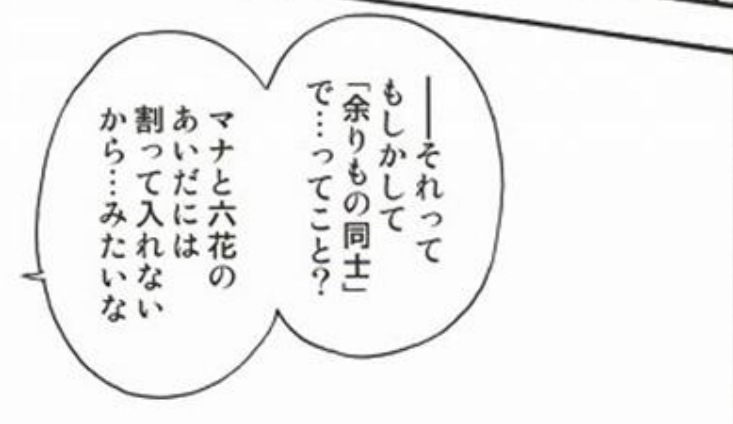 ──それって
もしかして
「余りもの同士」
で…ってこと？
マナと六花の
あいだには
割って入れない
から…みたいな